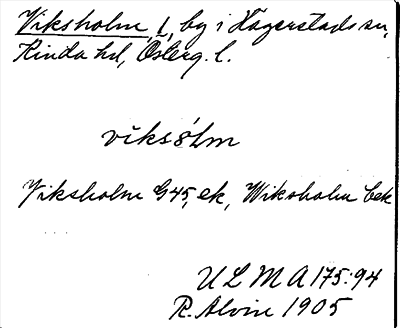 Viksholm, l, by i Hägerstads sn,
Kinda hd, Österg. l.
viksólm
Viksholm G45, ek, Wiksholm bek
ULMA 175:94
R. Alvin 1905